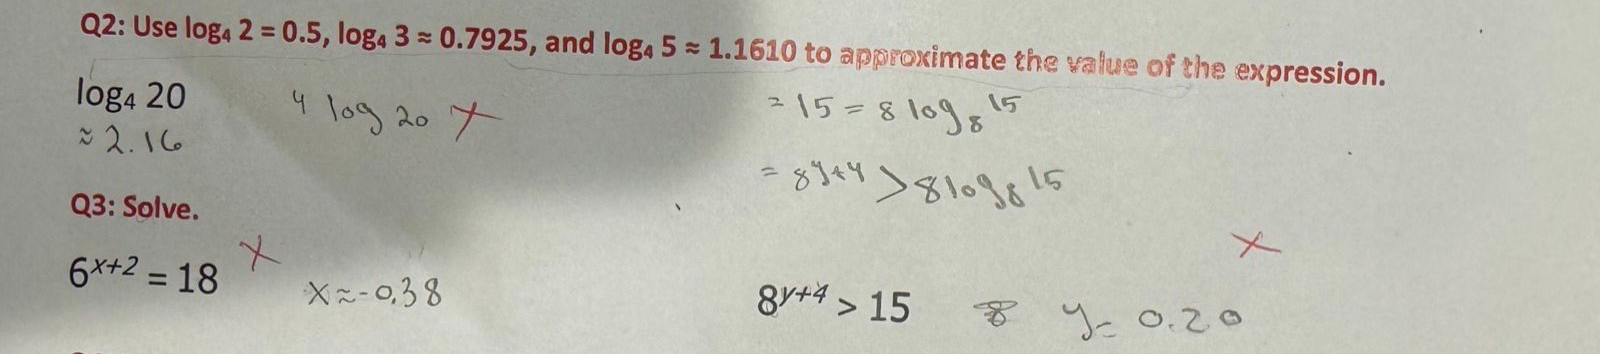 Q2: Use log₄ 2 = 0.5, log₄ 3 ≈ 0.7925, and log₄ 5 ≈ 1.1610 to approximate the value of the expression.
log₄ 20
4 log 20 X
≈ 2.16
= 15 = 8 log₈ 15
= 8^y+4 > 8 log₈ 15
Q3: Solve.
6^x+2 = 18 X
x ≈ -0.38
X
8^y+4 > 15
y = 0.20